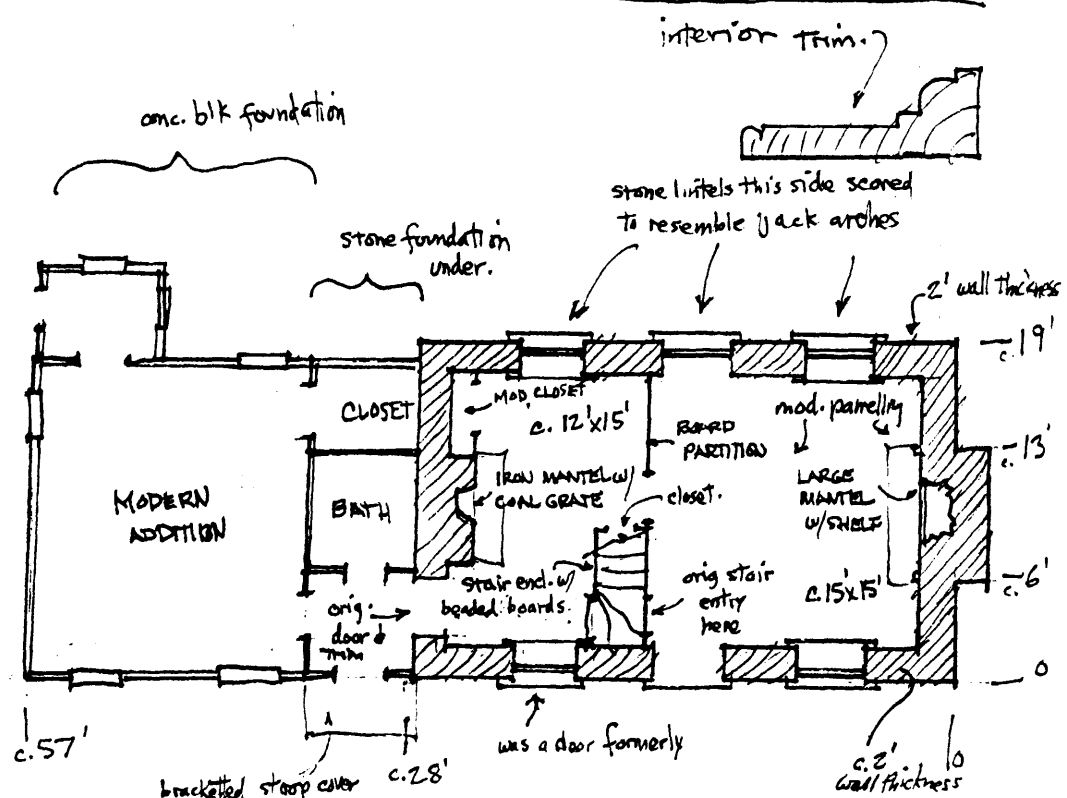 interior Trim.
conc. blk foundation
stone lintels this side scored
to resemble jack arches
stone foundation
under.
2' wall thickness
c. 19'
CLOSET
MOD. CLOSET
c. 12'x15'
BOARD
PARTITION
mod. panelling
c. 13'
MODERN
ADDITION
BATH
IRON MANTEL W/
COAL GRATE
closet.
LARGE
MANTEL
W/SHELF
stair encl. w/
beaded boards.
orig stair
entry
here
c. 15'x15'
c. 6'
orig.
door &
trim
0
c. 57'
bracketted stoop cover
c. 28'
was a door formerly
c. 2'
wall thickness
0